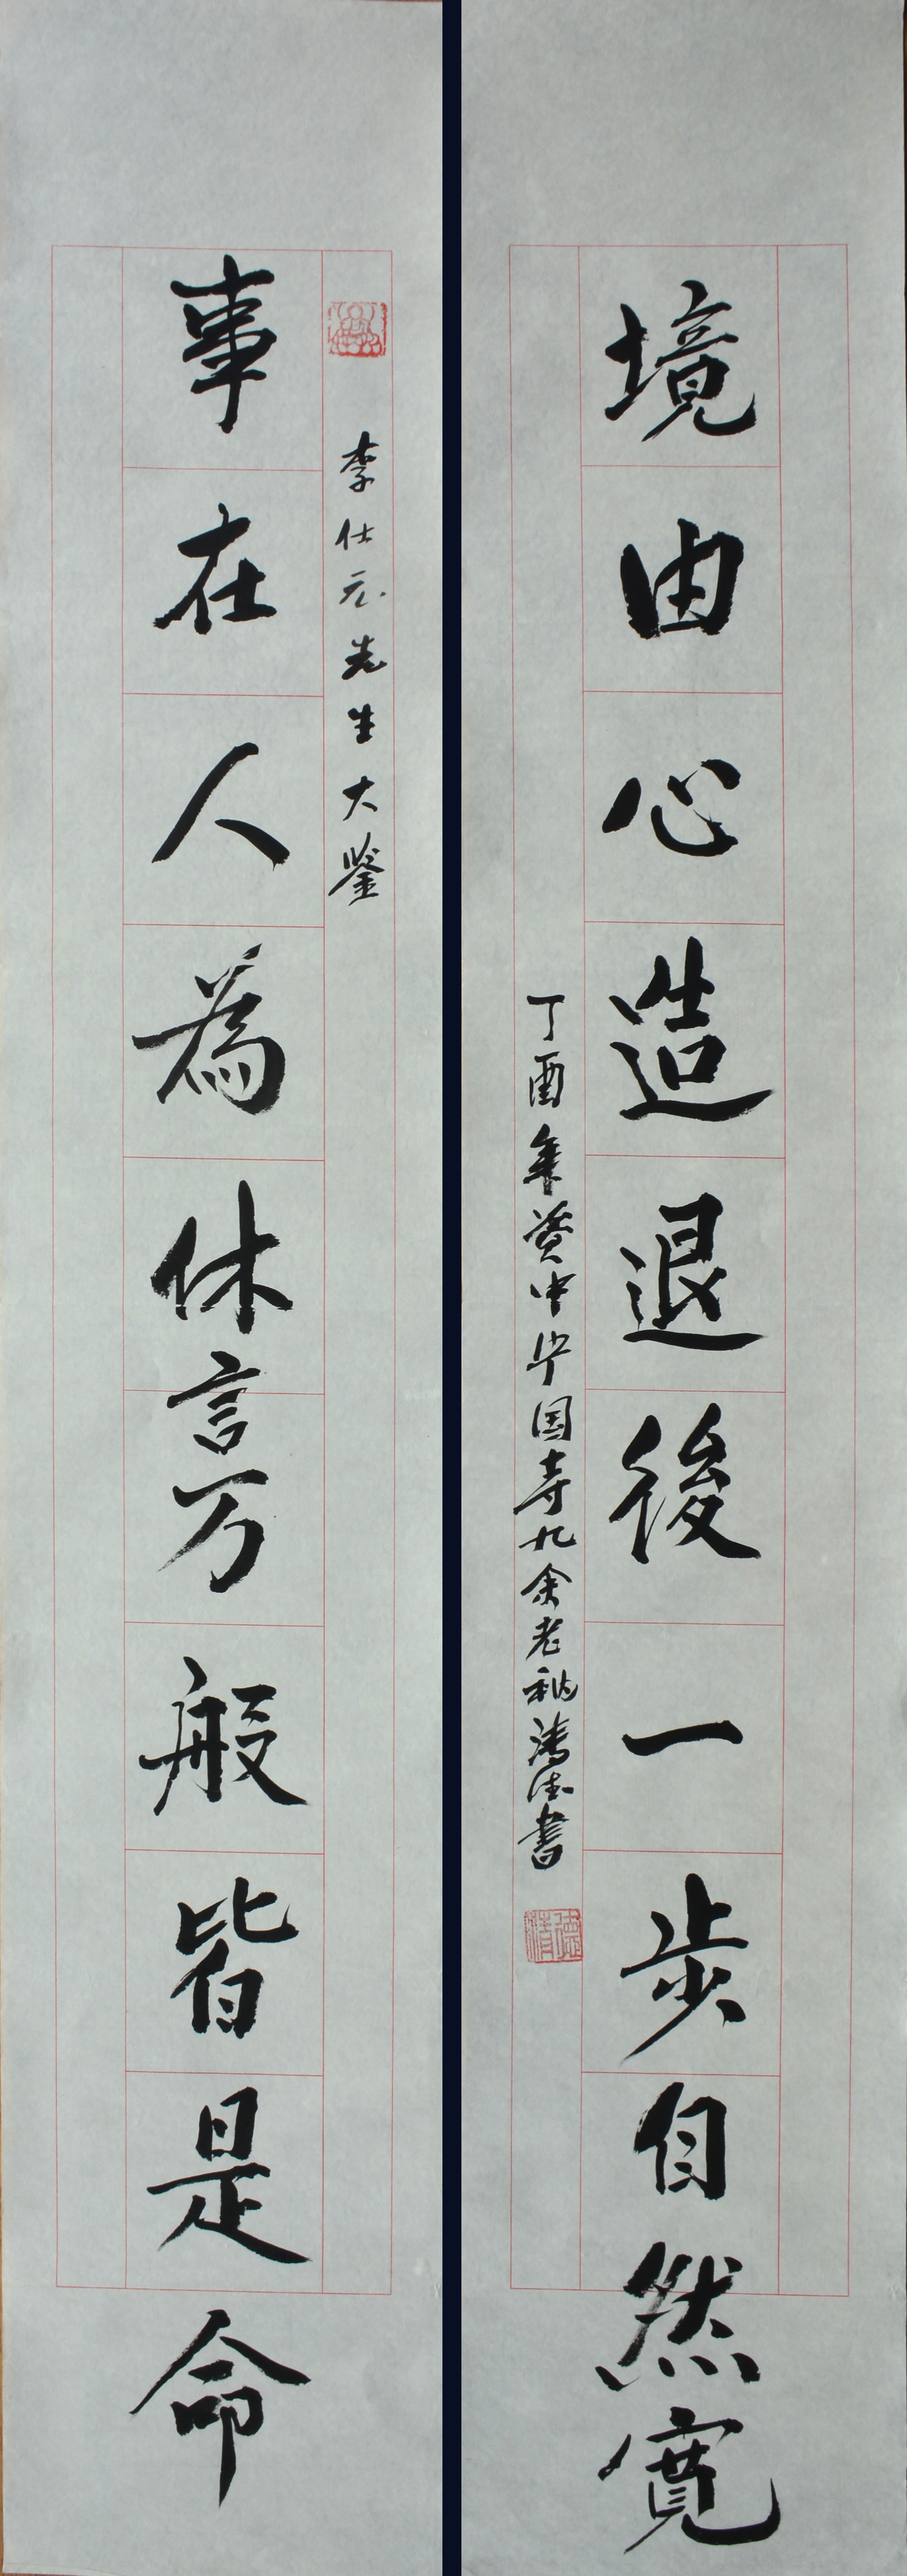 李仕元先生大鑒
事在人為休言万般皆是命
境由心造退後一步自然寬
丁酉年 中华国 九余老衲 書
德清